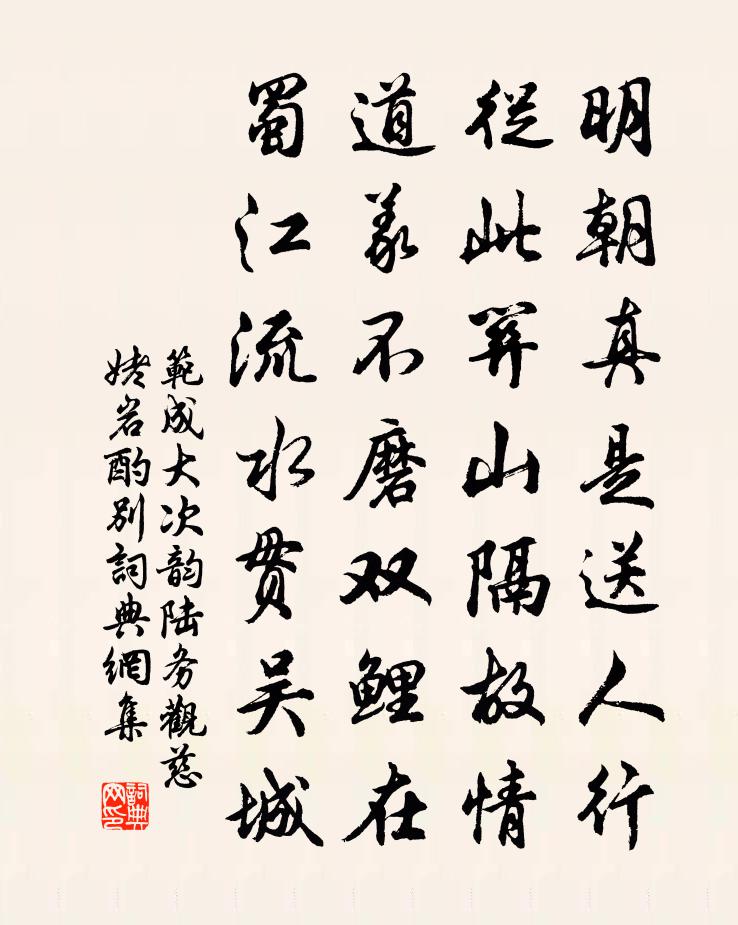 明朝真是送人行
從此關山隔故情
道義不磨双鲤在
蜀江流水贯吴城
範成大次韵陆务觀慈
姥岩酌别詞典網集
詞典
网印